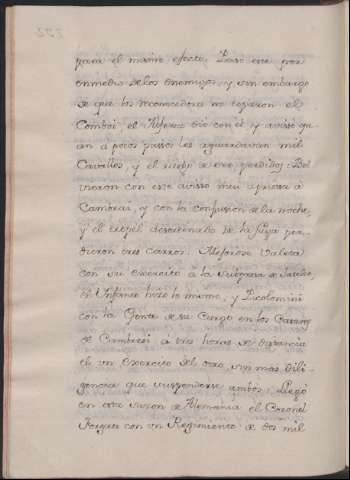 para el mismo efecto. Pasó este por
enmedio de los enemigos, y sin embargo
de que los reconocedores no toparon el
Comboi, el Teforme dio con él y avisó qu
an á pocos passos les aguardavan mil
Cavallos, y el riesgo de ser perdidos: Bol
vieron con este avisso mui apriessa á
Cambrai, y con la confusion de la noche,
y el tropel desordenado de la fuga per-
dieron tres carros. Alojosse Valeta
con su exercito á la
el Infante hizo lo mismo, y Picolomini
con la Gente de su Cargo en los
de Cambresi á tres horas de distancia
el un exercito del otro, sin mas dili-
gencia que suspenderse ambos: Llegó
en esta sazon de Alemania el Coronel
con un Regimiento de dos mil